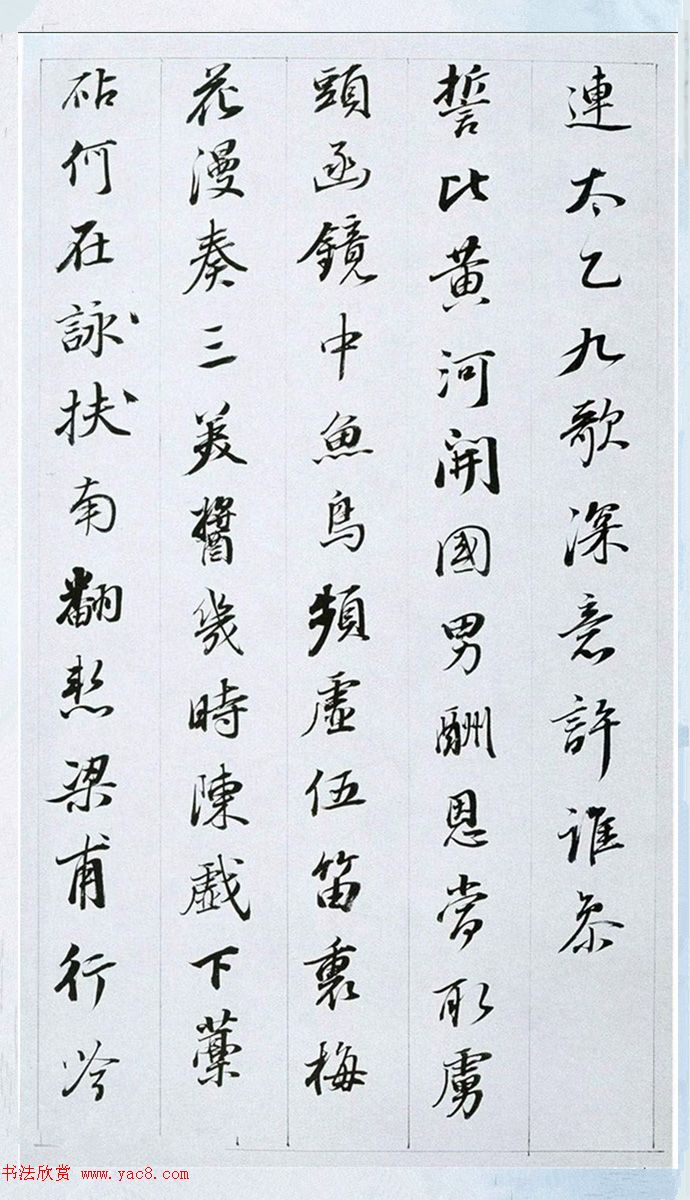 連太乙九歌深意許誰參
誓比黃河開國男酬恩當取虜
頭函鏡中魚鳥頻虛伍笛裏梅
花漫奏三美醬幾時陳戲下藁
砧何在詠扶南翻愁梁甫行吟
书法欣赏 www.yac8.com